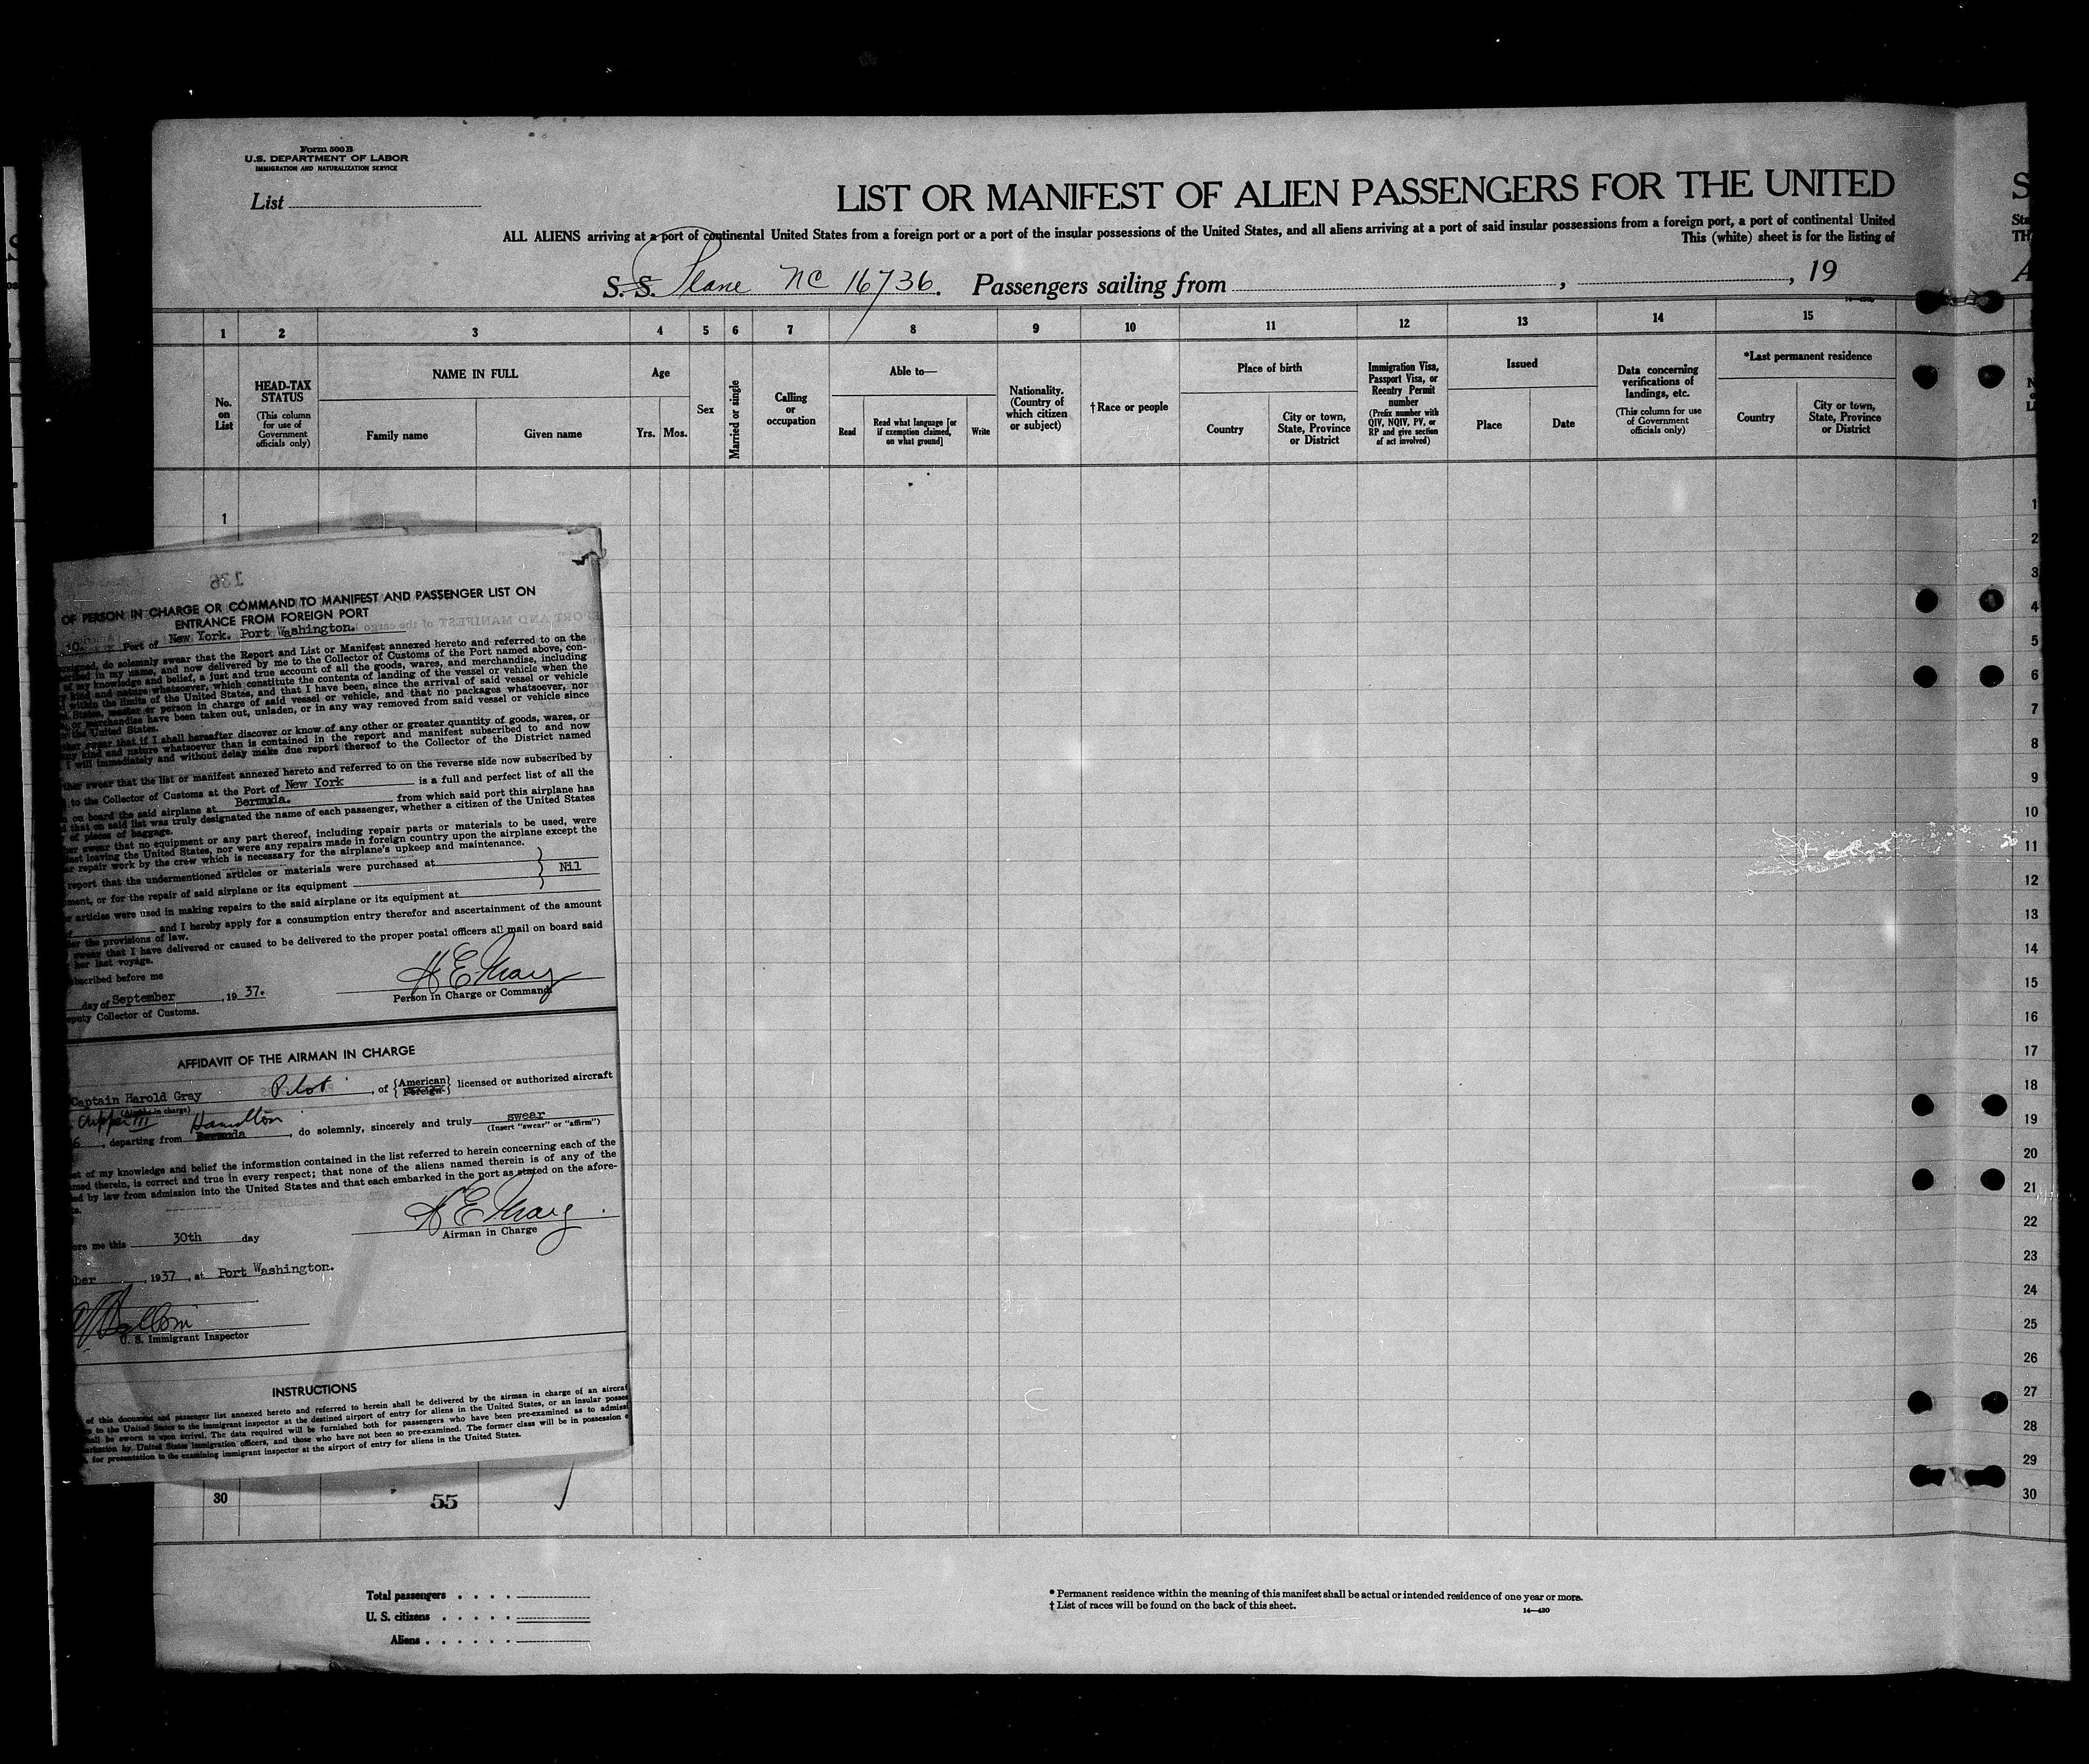 Form 500 B
U.S. DEPARTMENT OF LABOR
IMMIGRATION AND NATURALIZATION SERVICE
List
LIST OR MANIFEST OF ALIEN PASSENGERS FOR THE UNITED
S
ALL ALIENS arriving at a port of continental United States from a foreign port or a port of the insular possessions of the United States, and all aliens arriving at a port of said insular possessions from a foreign port, a port of continental United
Sta
This (white) sheet is for the listing of
TH
S. S. Plane NC 16736. Passengers sailing from , , 19
A
1 2 3 4 5 6 7 8 9 10 11 12 13 14 15
No. on List
HEAD-TAX STATUS
(This column for use of Government officials only)
NAME IN FULL
Family name
Given name
Age
Yrs. Mos.
Sex
Married or single
Calling or occupation
Able to—
Read
Read what language [or if exemption claimed, on what ground]
Write
Nationality. (Country of which citizen or subject)
†Race or people
Place of birth
Country
City or town, State, Province or District
Immigration Visa, Passport Visa, or Reentry Permit number
(Prefix number with QIV, NQIV, PV, or RP and give section of act involved)
Issued
Place
Date
Data concerning verifications of landings, etc.
(This column for use of Government officials only)
*Last permanent residence
Country
City or town, State, Province or District
1
136
OF PERSON IN CHARGE OR COMMAND TO MANIFEST AND PASSENGER LIST ON
ENTRANCE FROM FOREIGN PORT
10. Port of New York. Port Washington.
do solemnly swear that the Report and List or Manifest annexed hereto and referred to on the
in my name, and now delivered by me to the Collector of Customs of the Port named above, con-
of my knowledge and belief, a just and true account of all the goods, wares, and merchandise, including
kind and nature whatsoever, which constitute the contents of landing of the vessel or vehicle when the
within the limits of the United States, and that I have been, since the arrival of said vessel or vehicle
States, master or person in charge of said vessel or vehicle, and that no packages whatsoever, nor
or merchandise have been taken out, unladen, or in any way removed from said vessel or vehicle since
the United States.
swear that if I shall hereafter discover or know of any other or greater quantity of goods, wares, or
kind and nature whatsoever than is contained in the report and manifest subscribed to and now
I will immediately and without delay make due report thereof to the Collector of the District named
swear that the list or manifest annexed hereto and referred to on the reverse side now subscribed by
to the Collector of Customs at the Port of New York is a full and perfect list of all the
on board the said airplane at Bermuda. from which said port this airplane has
that on said list was truly designated the name of each passenger, whether a citizen of the United States
of pieces of baggage.
swear that no equipment or any part thereof, including repair parts or materials to be used, were
last leaving the United States, nor were any repairs made in foreign country upon the airplane except the
repair work by the crew which is necessary for the airplane's upkeep and maintenance.
report that the undermentioned articles or materials were purchased at
Nil
ment, or for the repair of said airplane or its equipment
articles were used in making repairs to the said airplane or its equipment at
and I hereby apply for a consumption entry therefor and ascertainment of the amount
the provisions of law.
swear that I have delivered or caused to be delivered to the proper postal officers all mail on board said
her last voyage.
scribed before me
H E Gray
day of September , 19 37.
Person in Charge or Command
eputy Collector of Customs.
AFFIDAVIT OF THE AIRMAN IN CHARGE
Captain Harold Gray Pilot , of {American Foreign} licensed or authorized aircraft
(Airman in charge)
Clipper III Hamilton
6 , departing from Bermuda , do solemnly, sincerely and truly swear
(Insert "swear" or "affirm")
st of my knowledge and belief the information contained in the list referred to herein concerning each of the
med therein, is correct and true in every respect; that none of the aliens named therein is of any of the
ed by law from admission into the United States and that each embarked in the port as stated on the afore-
H E Gray
Airman in Charge
ore me this 30th day
ber , 1937 , at Port Washington.
U. S. Immigrant Inspector
INSTRUCTIONS
of this document and passenger list annexed hereto and referred to herein shall be delivered by the airman in charge of an aircraf
to the United States to the immigrant inspector at the destined airport of entry for aliens in the United States, or an insular posses
shall be sworn to upon arrival. The data required will be furnished both for passengers who have been pre-examined as to admissi
by United States immigration officers, and those who have not been so pre-examined. The former class will be in possession
for presentation to the examining immigrant inspector at the airport of entry for aliens in the United States.
30 55
1
2
3
4
5
6
7
8
9
10
11
12
13
14
15
16
17
18
19
20
21
22
23
24
25
26
27
28
29
30
Total passengers
U. S. citizens
Aliens
* Permanent residence within the meaning of this manifest shall be actual or intended residence of one year or more.
† List of races will be found on the back of this sheet.
14—430